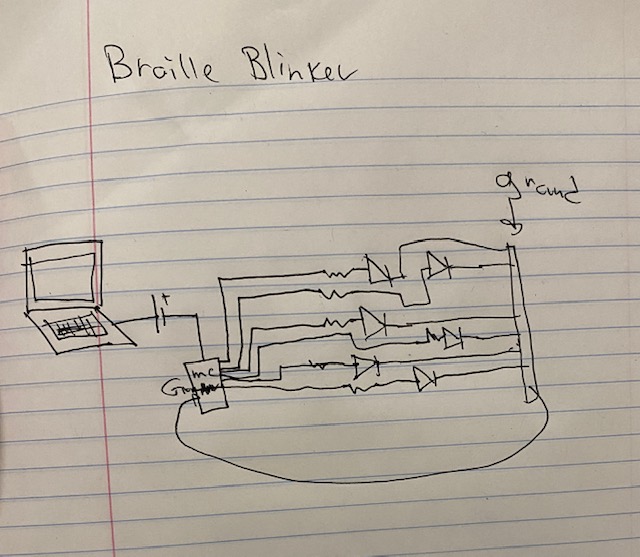 Braille Blinker
ground
mc